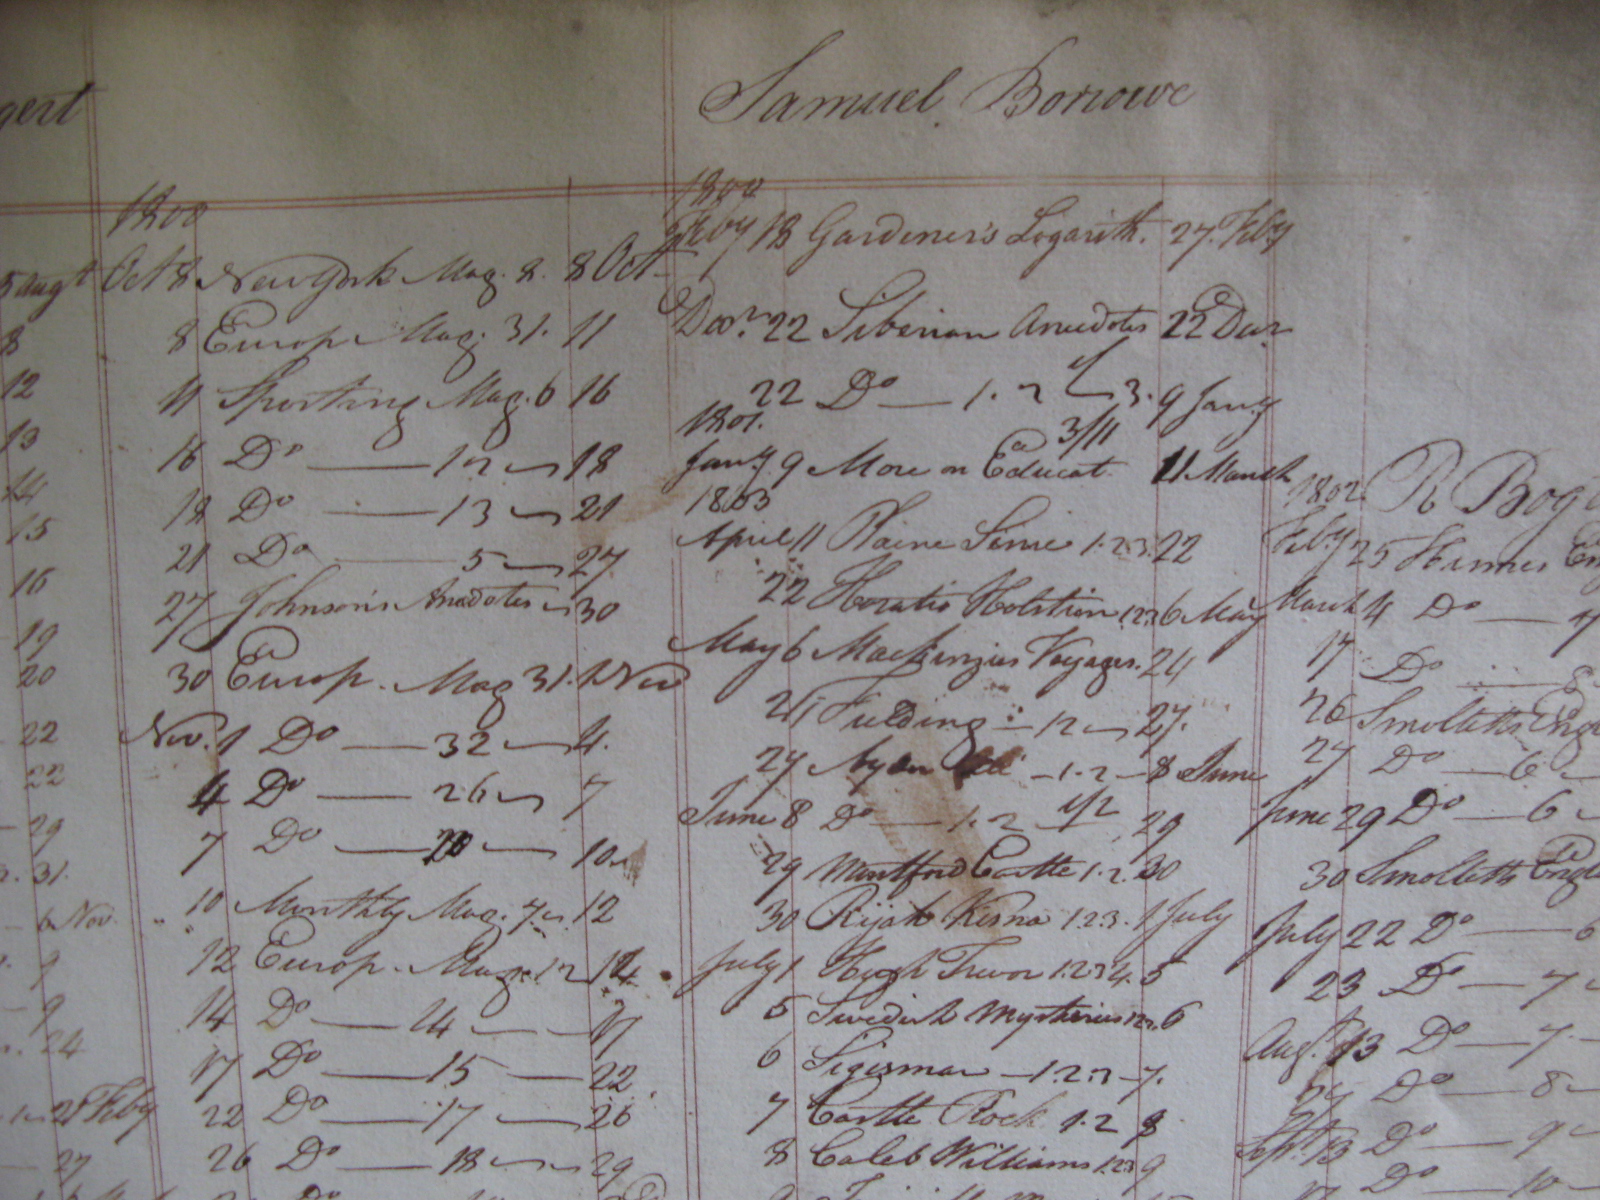 gert
Samuel Borrowe
1800
5 augt
8
12
13
14
15
16
19
20
22
22
29
31.
6 Nov.
9
9
24
28 Feby
27
Oct 8 New York Mag. 8. 8 Oct
8 Europ Mag. 31. 11
11 Sporting Mag. 6 16
16 Do — 12 — 18
18 Do — 13 — 21
21 Do — 5 — 27
27 Johnson's Anecdotes — 30
30 Europ. Mag 31. 1 Nov
Nov. 1 Do — 32 — 4.
4 Do — 26 — 7
7 Do — 20 — 10
10 Monthly Mag. 7 — 12
12 Europ. Mag. 12 14
14 Do — 14 — 17
17 Do — 15 — 22
22 Do — 17 — 26
26 Do — 18 — 29
1800
Feby 18 Gardener's Logarith. 27. Feby
Decr. 22 Siberian Anecdotes 22 Decr
22 Do — 1. 2 3. 9 Jany
1801. 3/11
Jany 9 More on Educat. 11 March
1803
April 11 Plaine Sense 1.2.3. 22
22 Horatio Holstien 1.2.3 6 May
May 6 Mackenzies Voyages. 24
24 Fielding — 12 — 27.
27 — 1.2 — 8 June
June 8 Do — 1.2 1/2 29
29 Montford Castle 1.2. 30
30 Rijah Kesna 1.2.3. 1 July
July 1 Hugh Trevor 1.2.3.4. 5
5 Swedish Mysteries 12. 6
6 Sigismar — 1.2.3 — 7.
7 Castle Rock 1.2 8
8 Caleb Williams 1.2.3 9
1802. R Bog
Feby 25 Humes En
March 4 Do — 7
17 Do
26 Smolletts Engl
27 Do — 6
June 29 Do — 6
30 Smolletts Engl
July 22 Do — 6
23 Do — 7
Augt. 13 Do — 7
24 Do — 8
Sept. 13 Do — 9
17 Do — 10